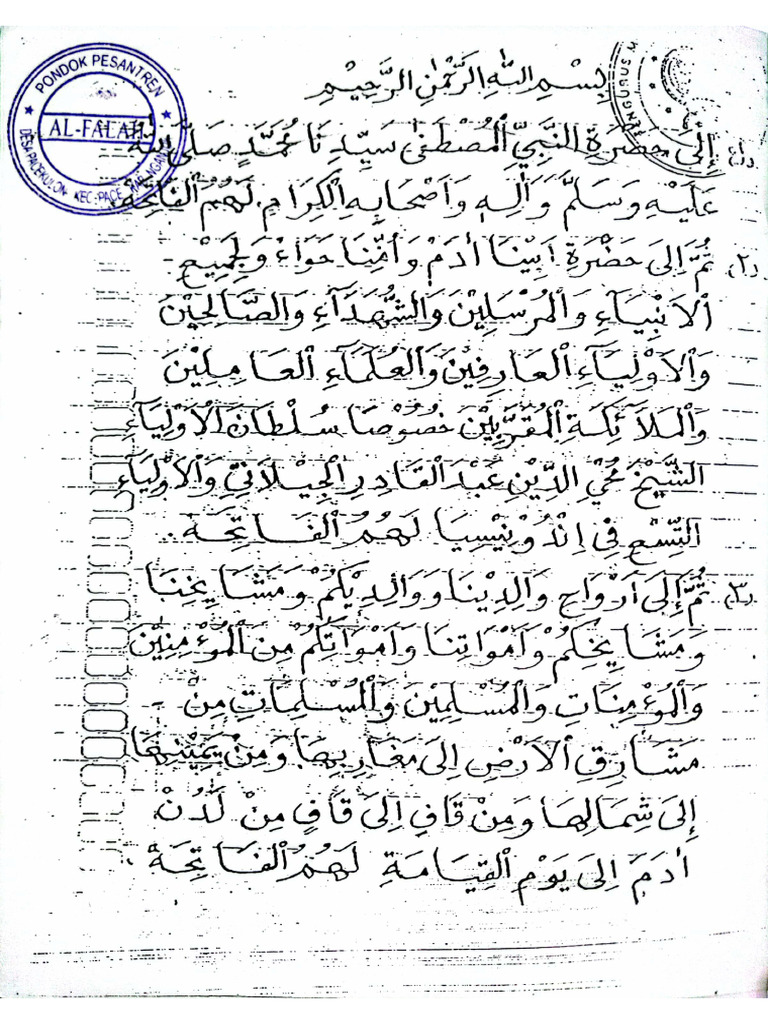 PONDOK PESANTREN
AL-FALAH
DESA PACEKULON KEC. PACE KAB. NGANJUK
بِسْمِ اللهِ الرَّحْمٰنِ الرَّحِيْمِ
(١) إِلَى حَضْرَةِ النَّبِيِّ الْمُصْطَفٰى سَيِّدِنَا مُحَمَّدٍ صَلَّى اللهُ
عَلَيْهِ وَسَلَّمَ وَآلِهِ وَاَصْحَابِهِ الْكِرَامِ. لَهُمُ الْفَاتِحَةْ.
(٢) ثُمَّ اِلَى حَضْرَةِ اَبِيْنَا أدَمْ وَأُمِّنَا حَوَاءْ وَلِجَمِيْعِ -
اْلاَنْبِيَآءِ وَالْمُرْسَلِيْنَ وَالشُّهَدَآءِ وَالصَّالِحِيْنَ
وَاْلاَوْلِيَآءِ الْعَارِفِيْنَ وَالْعُلَمَآءِ الْعَامِلِيْنَ
وَالْمَلاَئِكَةِ الْمُقَرَّبِيْنَ خُصُوْصًا سُلْطَانَ اْلاَوْلِيَآءِ
الشَّيْخْ مُحْيِ الدِّيْنِ عَبْدَ الْقَادِرِ الْجِيْلاَنِيّ وَاْلاَوْلِيَآءِ
التِّسْعِ فِى اِنْدُوْنِيْسِيَا لَهُمُ الْفَاتِحَةْ.
(٣) ثُمَّ إِلَى أَرْوَاحِ وَالِدِيْنَا وَوَالِدِيْكُمْ وَمَشَايِخِنَا
وَمَشَايِخِكُمْ وَاَمْوَاتِنَا وَاَمْوَاتِكُمْ مِنَ الْمُوءْمِنِيْنَ
وَالْمُوءْمِنَاتِ وَالْمُسْلِمِيْنَ وَالْمُسْلِمَاتِ مِنْ -
مَشَارِقِ اْلاَرْضِ اِلَى مَغَارِبِهَا وَمِنْ يَمِيْنِهَا
إِلَى شِمَالِهَا وَمِنْ قَافٍ اِلَى قَافٍ مِنْ لَدُنْ
أدَمَ اِلَى يَوْمِ الْقِيَامَةِ لَهُمُ الْفَاتِحَةْ.